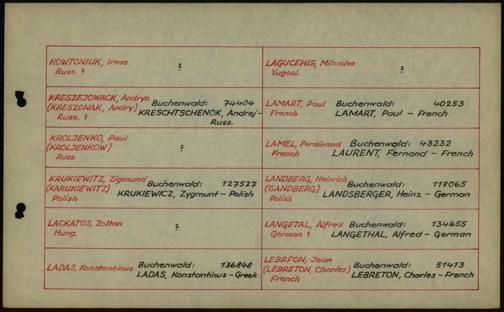 KOWTONIUK, Irena
Russ. ?
?
KRESZEJOWACK, Andryo
(KRESZONIAK, Andry)
Russ. ?
Buchenwald: 74404
KRESCHTSCHENOK, Andrej -
Russ.
KROLJENKO, Paul
(KROLJENKOW)
Russ.
?
KRUKIEWITZ, Zigmund
(KARUKIEWITZ)
Polish
Buchenwald: 127527
KRUKIEWICZ, Zygmunt - Polish
LACKATOS, Zoltan
Hung.
?
LADAS, Konstantinus
Buchenwald: 136848
LADAS, Konstantinus - Greek
LAGUCEHIS, Miloscha
Yugosl.
?
LAMART, Paul
French
Buchenwald: 40253
LAMART, Paul - French
LAMEL, Ferdinand
French
Buchenwald: 43232
LAURENT, Fernand - French
LANDBERG, Heinrich
(SANDBERG)
Polish
Buchenwald: 118065
LANDSBERGER, Heinz - German
LANGETAL, Alfred
German ?
Buchenwald: 134655
LANGETHAL, Alfred - German
LEBRFON, Jean
(LEBRETON, Charles)
French
Buchenwald: 51413
LEBRETON, Charles - French